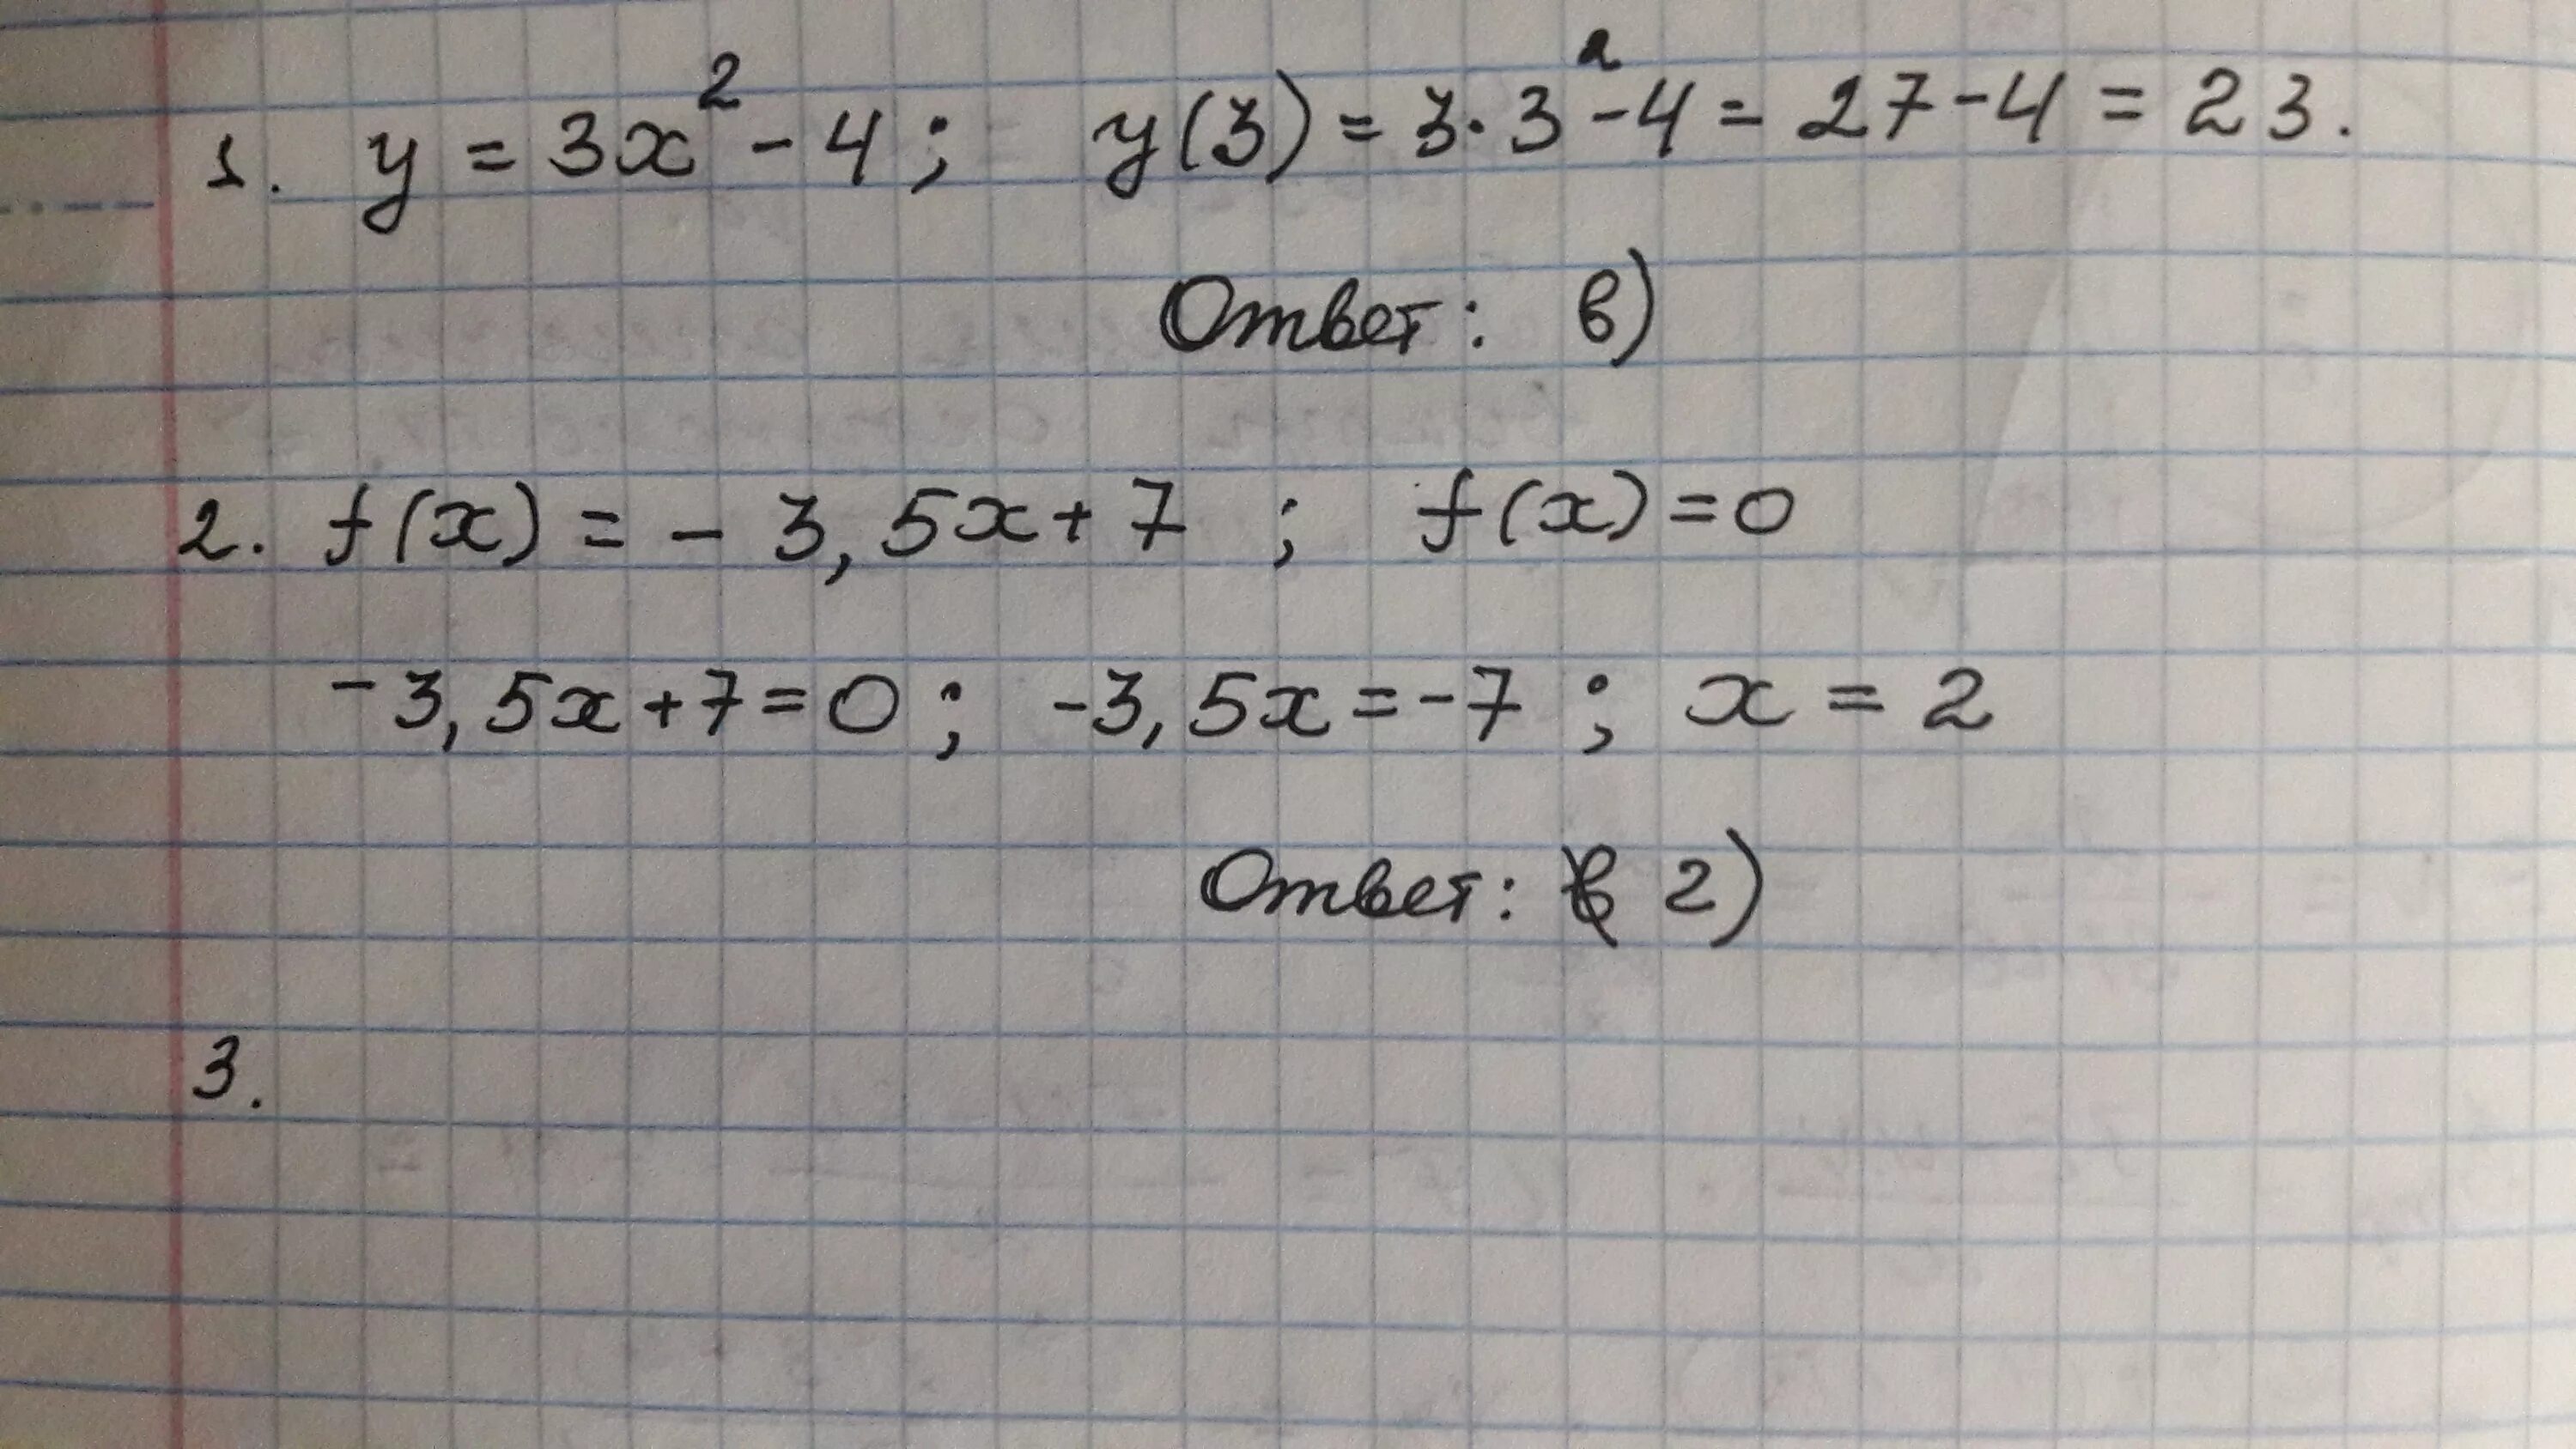 1. y = 3x² - 4 ; y(3) = 3·3² - 4 = 27 - 4 = 23.
Ответ: в)
2. f(x) = - 3,5x + 7 ; f(x) = 0
-3,5x + 7 = 0 ; -3,5x = -7 ; x = 2
Ответ: г)
3.